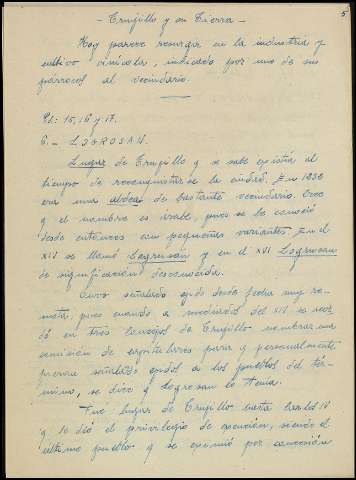 5
- Trujillo y su Tierra -
Hoy parece resurgir en la industria y
cultivo vinícola, iniciado por uno de sus
párrocos al vecindario.
Ps: 15, 16 y 17.
6. - LOGROSAN.
Lugar de Trujillo q se sabe existía al
tiempo de reconquistarse la ciudad. En 1232
era una aldea de bastante vecindario. Cree
q el nombre es árabe, pues se la conoció
desde entonces con pequeñas variantes. En el
XIV se llamó Logrusan y en el XVI Logrusan
de significación desconocida.
Tuvo señalado desde fecha muy re-
mota, pues cuando a mediados del XIV se acor
dó en tres Concejos de Trujillo nombrar una
comisión de para q personalmente
señalado a los pueblos del tér-
mino, se dice q Logrosan lo tenía.
Fue lugar de Trujillo hasta
q se dió el privilegio de exención, siendo el
último pueblo q se eximió por concesión